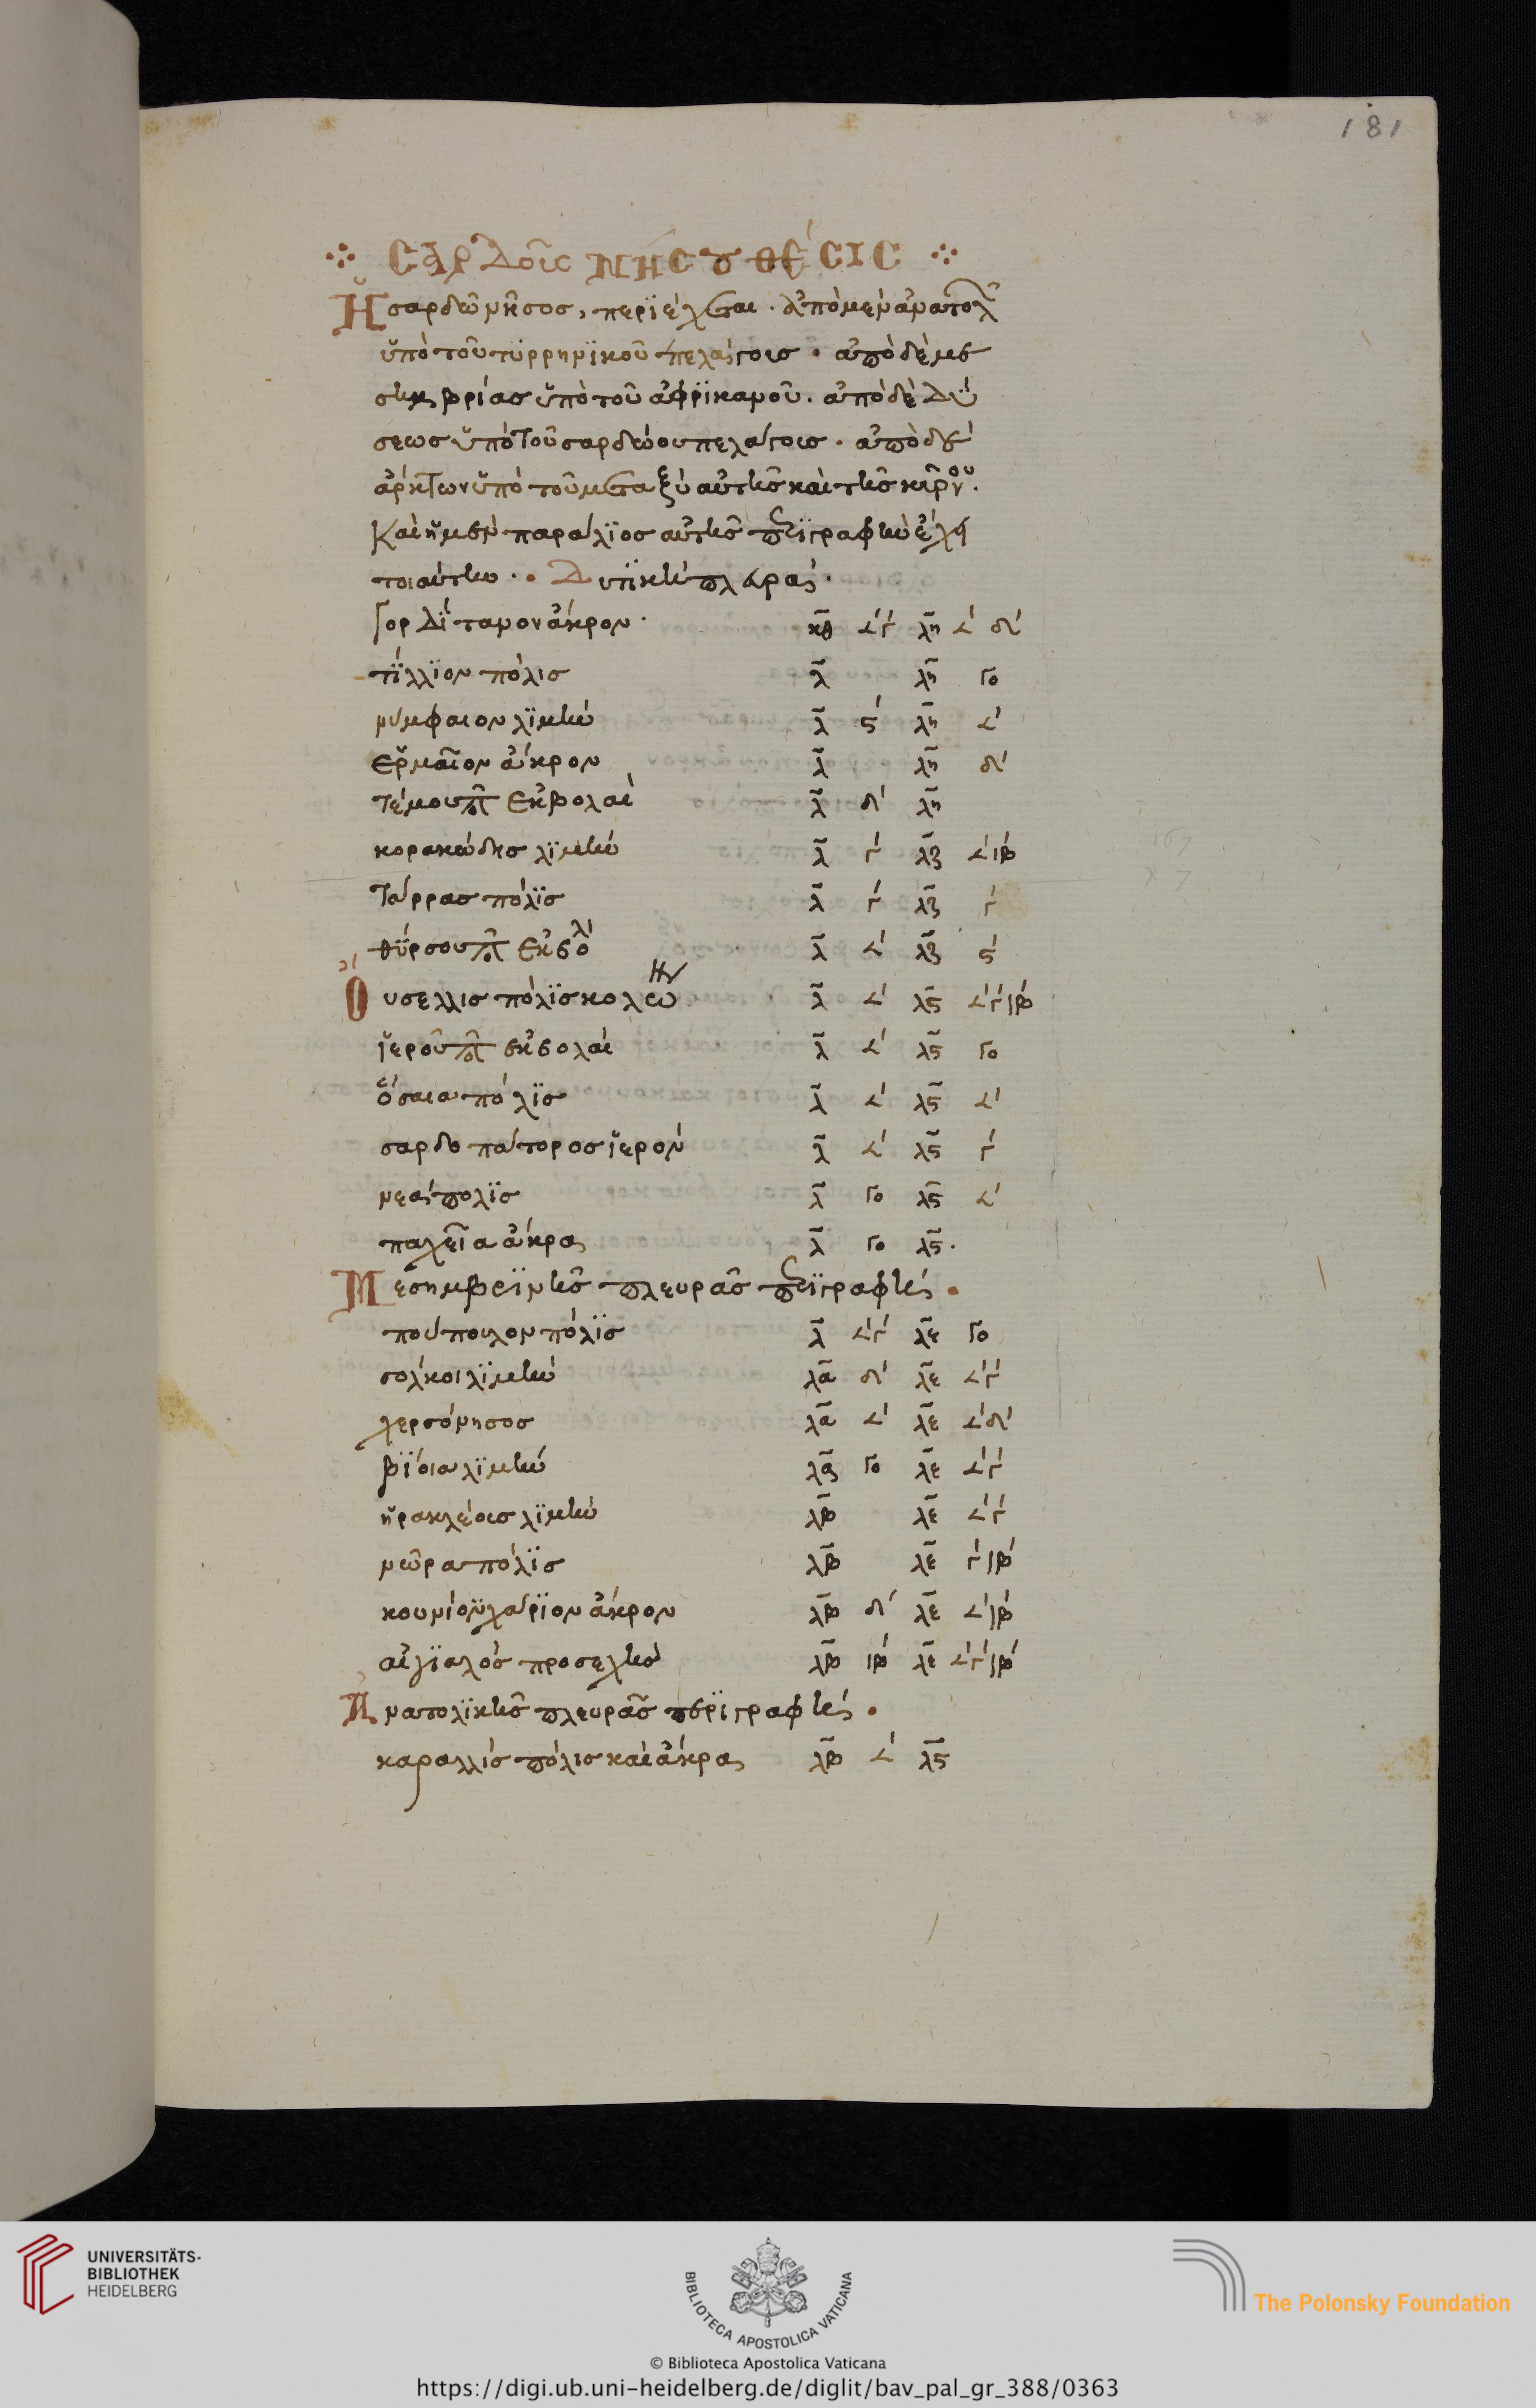 181
Σαρδοῦς νήσου θέσις
Ἡ σαρδὼ νῆσος, περιέχεται· ἀπὸ μὲν ἀνατολ
ὑπὸ τοῦ τυρρηνικοῦ πελάγους· ἀπὸ δὲ με
σημβρίας ὑπὸ τοῦ ἀφρικανοῦ. ἀπὸ δὲ δύ
σεως ὑπὸ τοῦ σαρδώου πελάγους· ἀπὸ δὲ
ἄρκτων ὑπὸ τοῦ μεταξὺ αὐτῆς καὶ τῆς κύρνου.
Καὶ ἡ μὲν παράλιος αὐτῆς περιγραφὴν ἔχει
τοιαύτην· Δυτικὴ πλευρά·
Γορδίτανον ἄκρον· κθ 𐅵 γ λη 𐅵 δ
τίλλιον πόλις λ λη γο
νύμφαιον λιμὴν λ ϛ λη 𐅵
ἑρμαῖον ἄκρον λ λη δ
Τέμου π ἐκβολαί λ δ λη
κορακώδης λιμήν λ γ λζ 𐅵 ιβ
Τάρρας πόλις λ γ λζ γ
θύρσου π ἐκβολ λ 𐅵 λζ ϛ
Οὐσελλις πόλις κολων λ 𐅵 λϛ 𐅵 γ ιβ
ἱεροῦ π ἐκβολαί λ 𐅵 λϛ γο
ὄσαια πόλις λ 𐅵 λϛ 𐅵
σαρδοπάτορος ἱερόν λ 𐅵 λϛ γ
νεάπολις λ γο λϛ 𐅵
παχεῖα ἄκρα λ γο λϛ.
Μεσημβρινῆς πλευρᾶς περιγραφή·
πούπουλον πόλις λ 𐅵 γ λε γο
σόλκοι λιμήν λα δ λε 𐅵 γ
χερσόνησος λα 𐅵 λε 𐅵 δ
βίοια λιμήν λα γο λε 𐅵 γ
ἡρακλέους λιμήν λβ λε 𐅵 γ
νῶρα πόλις λβ λε γ ιβ
κουνίουχάριον ἄκρον λβ δ λε 𐅵 ιβ
αἰγιαλὸς προσεχής λβ ιβ λε 𐅵 γ ιβ
Ἀνατολικῆς πλευρᾶς περιγραφή·
καραλλίς πόλις καὶ ἄκρα λβ 𐅵 λϛ
UNIVERSITÄTS-
BIBLIOTHEK
HEIDELBERG
BIBLIOTECA APOSTOLICA VATICANA
The Polonsky Foundation
© Biblioteca Apostolica Vaticana
https://digi.ub.uni-heidelberg.de/diglit/bav_pal_gr_388/0363